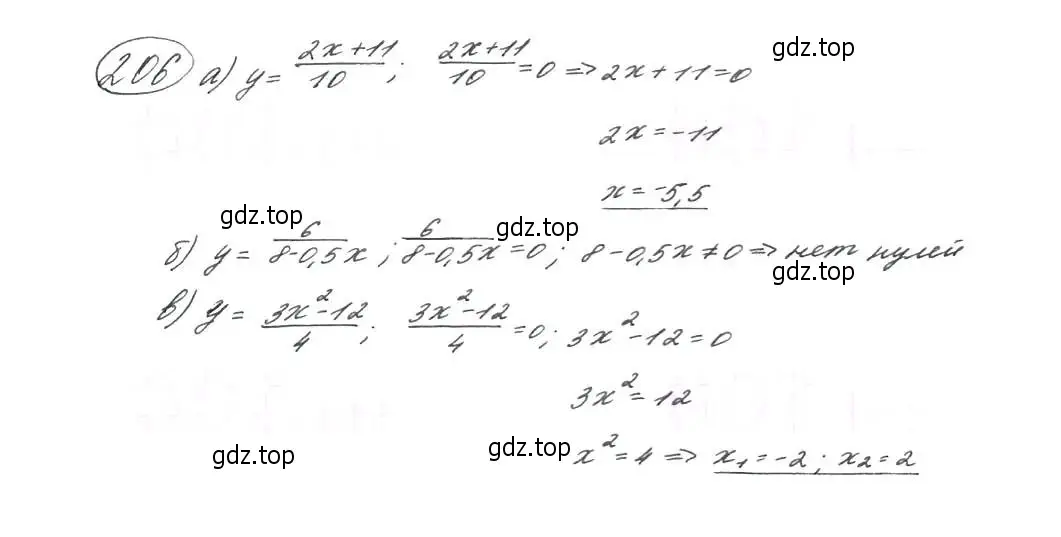 206 а) y = (2x+11)/10 ; (2x+11)/10 = 0 => 2x+11=0
gdz.top
2x = -11
x = -5,5
gdz.top
gdz.top
б) y = 6/(8-0,5x) ; 6/(8-0,5x) = 0 ; 8-0,5x ≠ 0 => нет нулей
gdz.top
в) y = (3x²-12)/4 ; (3x²-12)/4 = 0 ; 3x²-12 = 0
3x² = 12
gdz.top
gdz.top
x² = 4 => x₁ = -2 ; x₂ = 2